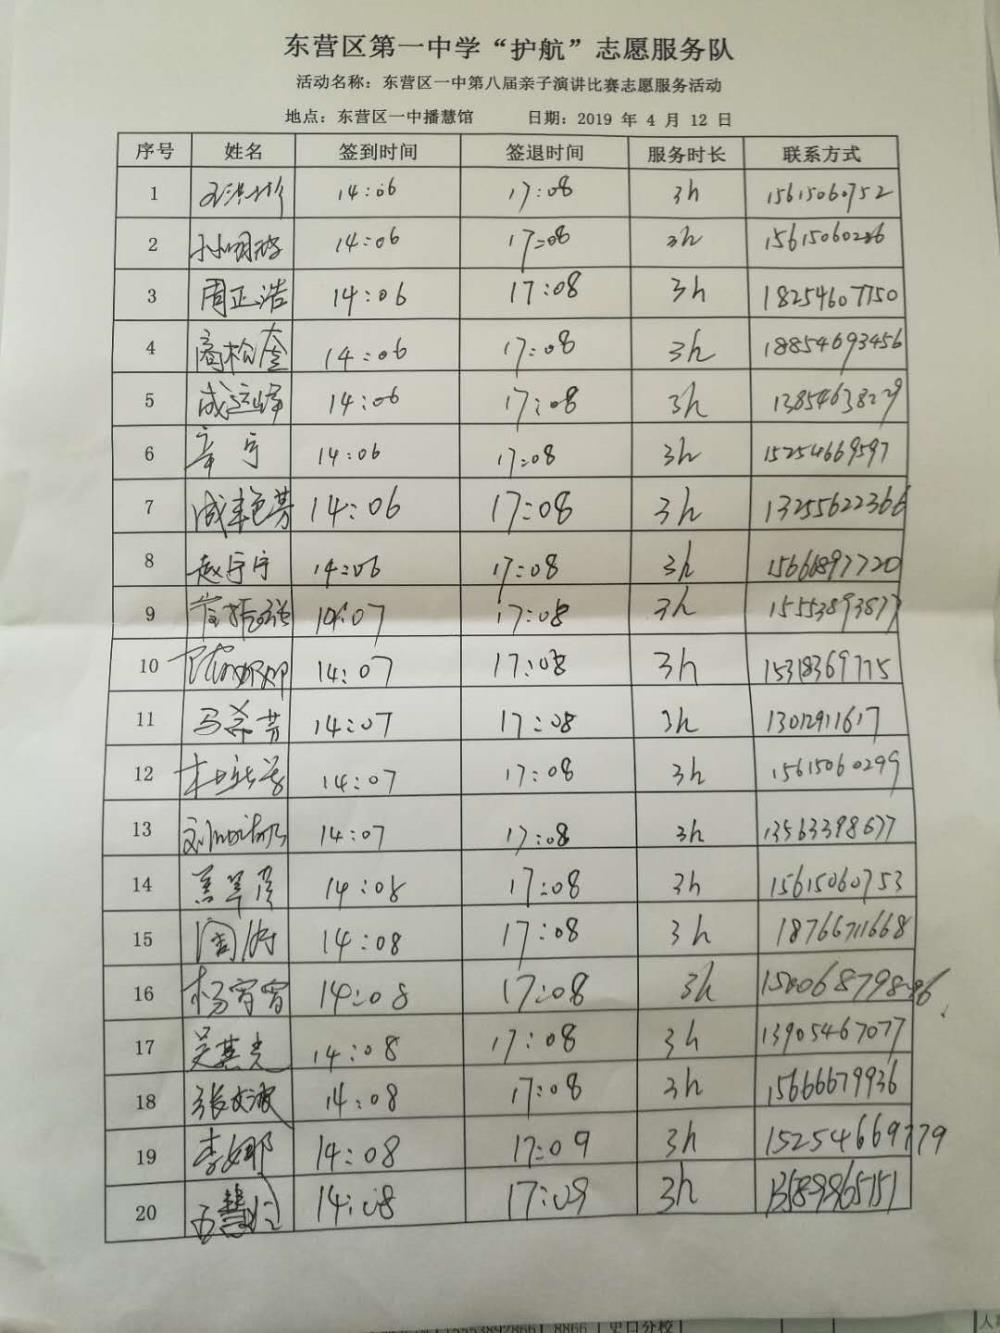 东营区第一中学“护航”志愿服务队
活动名称：东营区一中第八届亲子演讲比赛志愿服务活动
地点：东营区一中播慧馆 日期：2019 年 4 月 12 日
序号 姓名 签到时间 签退时间 服务时长 联系方式
1 14:06 17:08 3h 15615060752
2 14:06 17:08 3h 15615060286
3 周正浩 14:06 17:08 3h 18254607750
4 商松奎 14:06 17:08 3h 18854693456
5 成远峰 14:06 17:08 3h 13854638229
6 辛宁 14:06 17:08 3h 15254669597
7 成艳芳 14:06 17:08 3h 13255622366
8 赵宁宁 14:06 17:08 3h 15666897720
9 14:07 17:08 3h 15553893877
10 陈娜娜 14:07 17:08 3h 15318369775
11 马希芳 14:07 17:08 3h 13012911617
12 14:07 17:08 3h 15615060299
13 14:07 17:08 3h 13563398677
14 14:08 17:08 3h 15615060753
15 周波 14:08 17:08 3h 18766711668
16 杨宵宵 14:08 17:08 3h
17 吴其光 14:08 17:08 3h 13905467077
18 张文波 14:08 17:08 3h 15666679936
19 李娜 14:08 17:09 3h 15254669779
20 14:08 17:09 3h 13589965151
15553892866 8866 史口分校